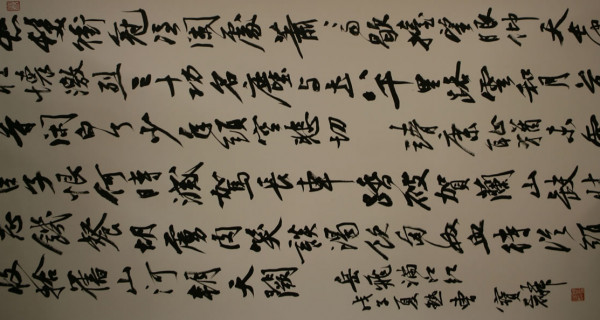 髮衝冠憑闌處蕭〻雨歇擡望眼仰天
懷激烈三十功名塵與土八千里路雲和月莫
等閑白了少年頭空悲切 靖康恥猶未雪
臣子恨何時滅駕長車踏破賀蘭山缺壯
志饑餐胡虜肉笑談渴飲匈奴血待從頭
收拾舊山河朝天闕 岳飛滿江紅
戊子夏